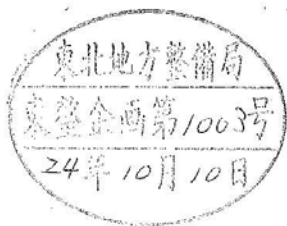 東北地方整備局
東整企画第1003号
24年10月10日